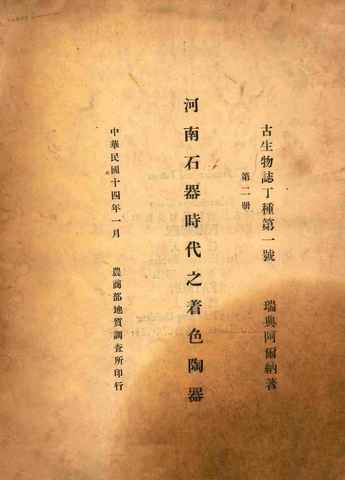 古生物誌丁種第一號 瑞典阿爾納著
第二册
河南石器時代之着色陶器
中華民國十四年一月 農商部地質調查所印行